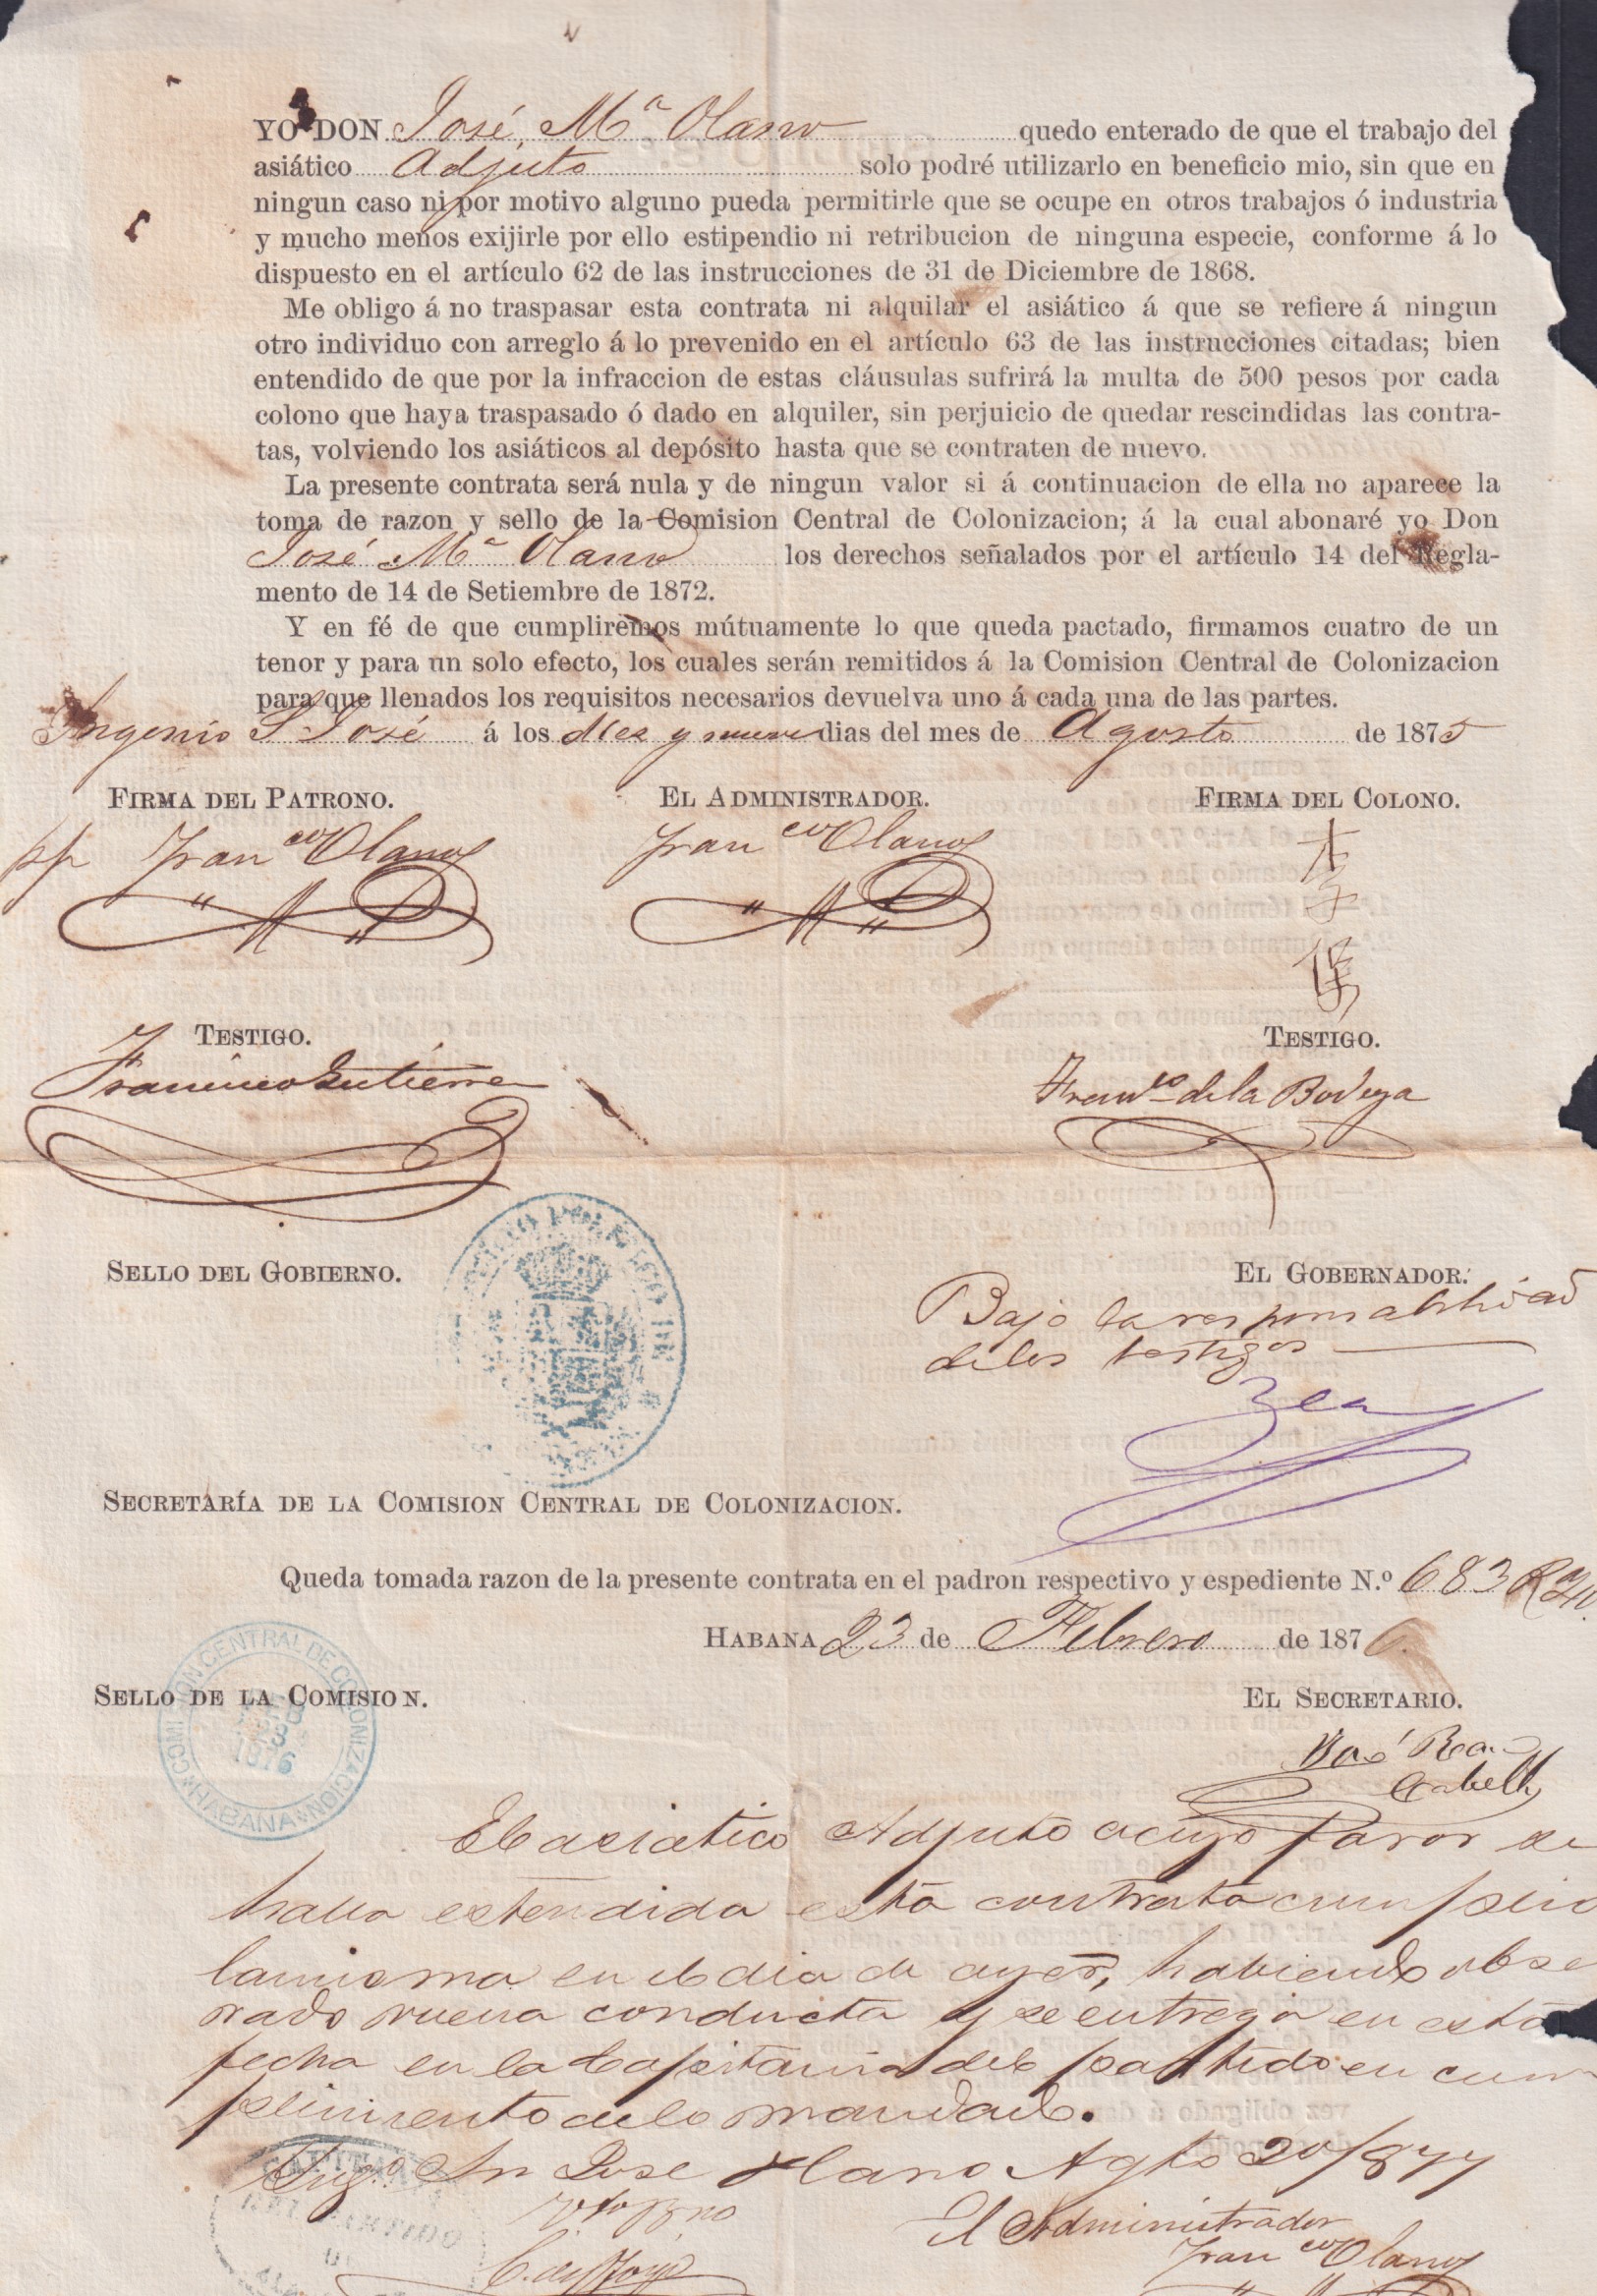 YO DON José Mª Olano quedo enterado de que el trabajo del
asiático Adjuto solo podré utilizarlo en beneficio mio, sin que en
ningun caso ni por motivo alguno pueda permitirle que se ocupe en otros trabajos ó industria
y mucho menos exijirle por ello estipendio ni retribucion de ninguna especie, conforme á lo
dispuesto en el artículo 62 de las instrucciones de 31 de Diciembre de 1868.
Me obligo á no traspasar esta contrata ni alquilar el asiático á que se refiere á ningun
otro individuo con arreglo á lo prevenido en el artículo 63 de las instrucciones citadas; bien
entendido de que por la infraccion de estas cláusulas sufrirá la multa de 500 pesos por cada
colono que haya traspasado ó dado en alquiler, sin perjuicio de quedar rescindidas las contra-
tas, volviendo los asiáticos al depósito hasta que se contraten de nuevo.
La presente contrata será nula y de ningun valor si á continuacion de ella no aparece la
toma de razon y sello de la Comision Central de Colonizacion; á la cual abonaré yo Don
José Mª Olano los derechos señalados por el artículo 14 del Regla-
mento de 14 de Setiembre de 1872.
Y en fé de que cumpliremos mútuamente lo que queda pactado, firmamos cuatro de un
tenor y para un solo efecto, los cuales serán remitidos á la Comision Central de Colonizacion
para que llenados los requisitos necesarios devuelva uno á cada una de las partes.
Ingenio S José á los diez y nueve dias del mes de Agosto de 1875
FIRMA DEL PATRONO. EL ADMINISTRADOR. FIRMA DEL COLONO.
pp Fran co Olano Fran co Olano
TESTIGO. TESTIGO.
Francisco Gutierre Franco de la Bodega
SELLO DEL GOBIERNO. EL GOBERNADOR.
Bajo la responsabilidad
de los testigos
Zea
SECRETARÍA DE LA COMISION CENTRAL DE COLONIZACION.
Queda tomada razon de la presente contrata en el padron respectivo y espediente N.º 683
HABANA 23 de Febrero de 1876.
COMISION CENTRAL DE COLONIZACION HABANA
FEB 23 1876
SELLO DE LA COMISION. EL SECRETARIO.
El asiatico Adjuto a cuyo favor se
halla estendida esta contrata cumplio
la misma en el dia de ayer, habiendo obse
rvado buena conducta y se entrega en esta
fecha en la Capitania del partido en cum
plimiento de lo mandado.
Ingo Sn Jose Olano Agto 20/877
Vto Bno
El Administrador
Fran co Olano